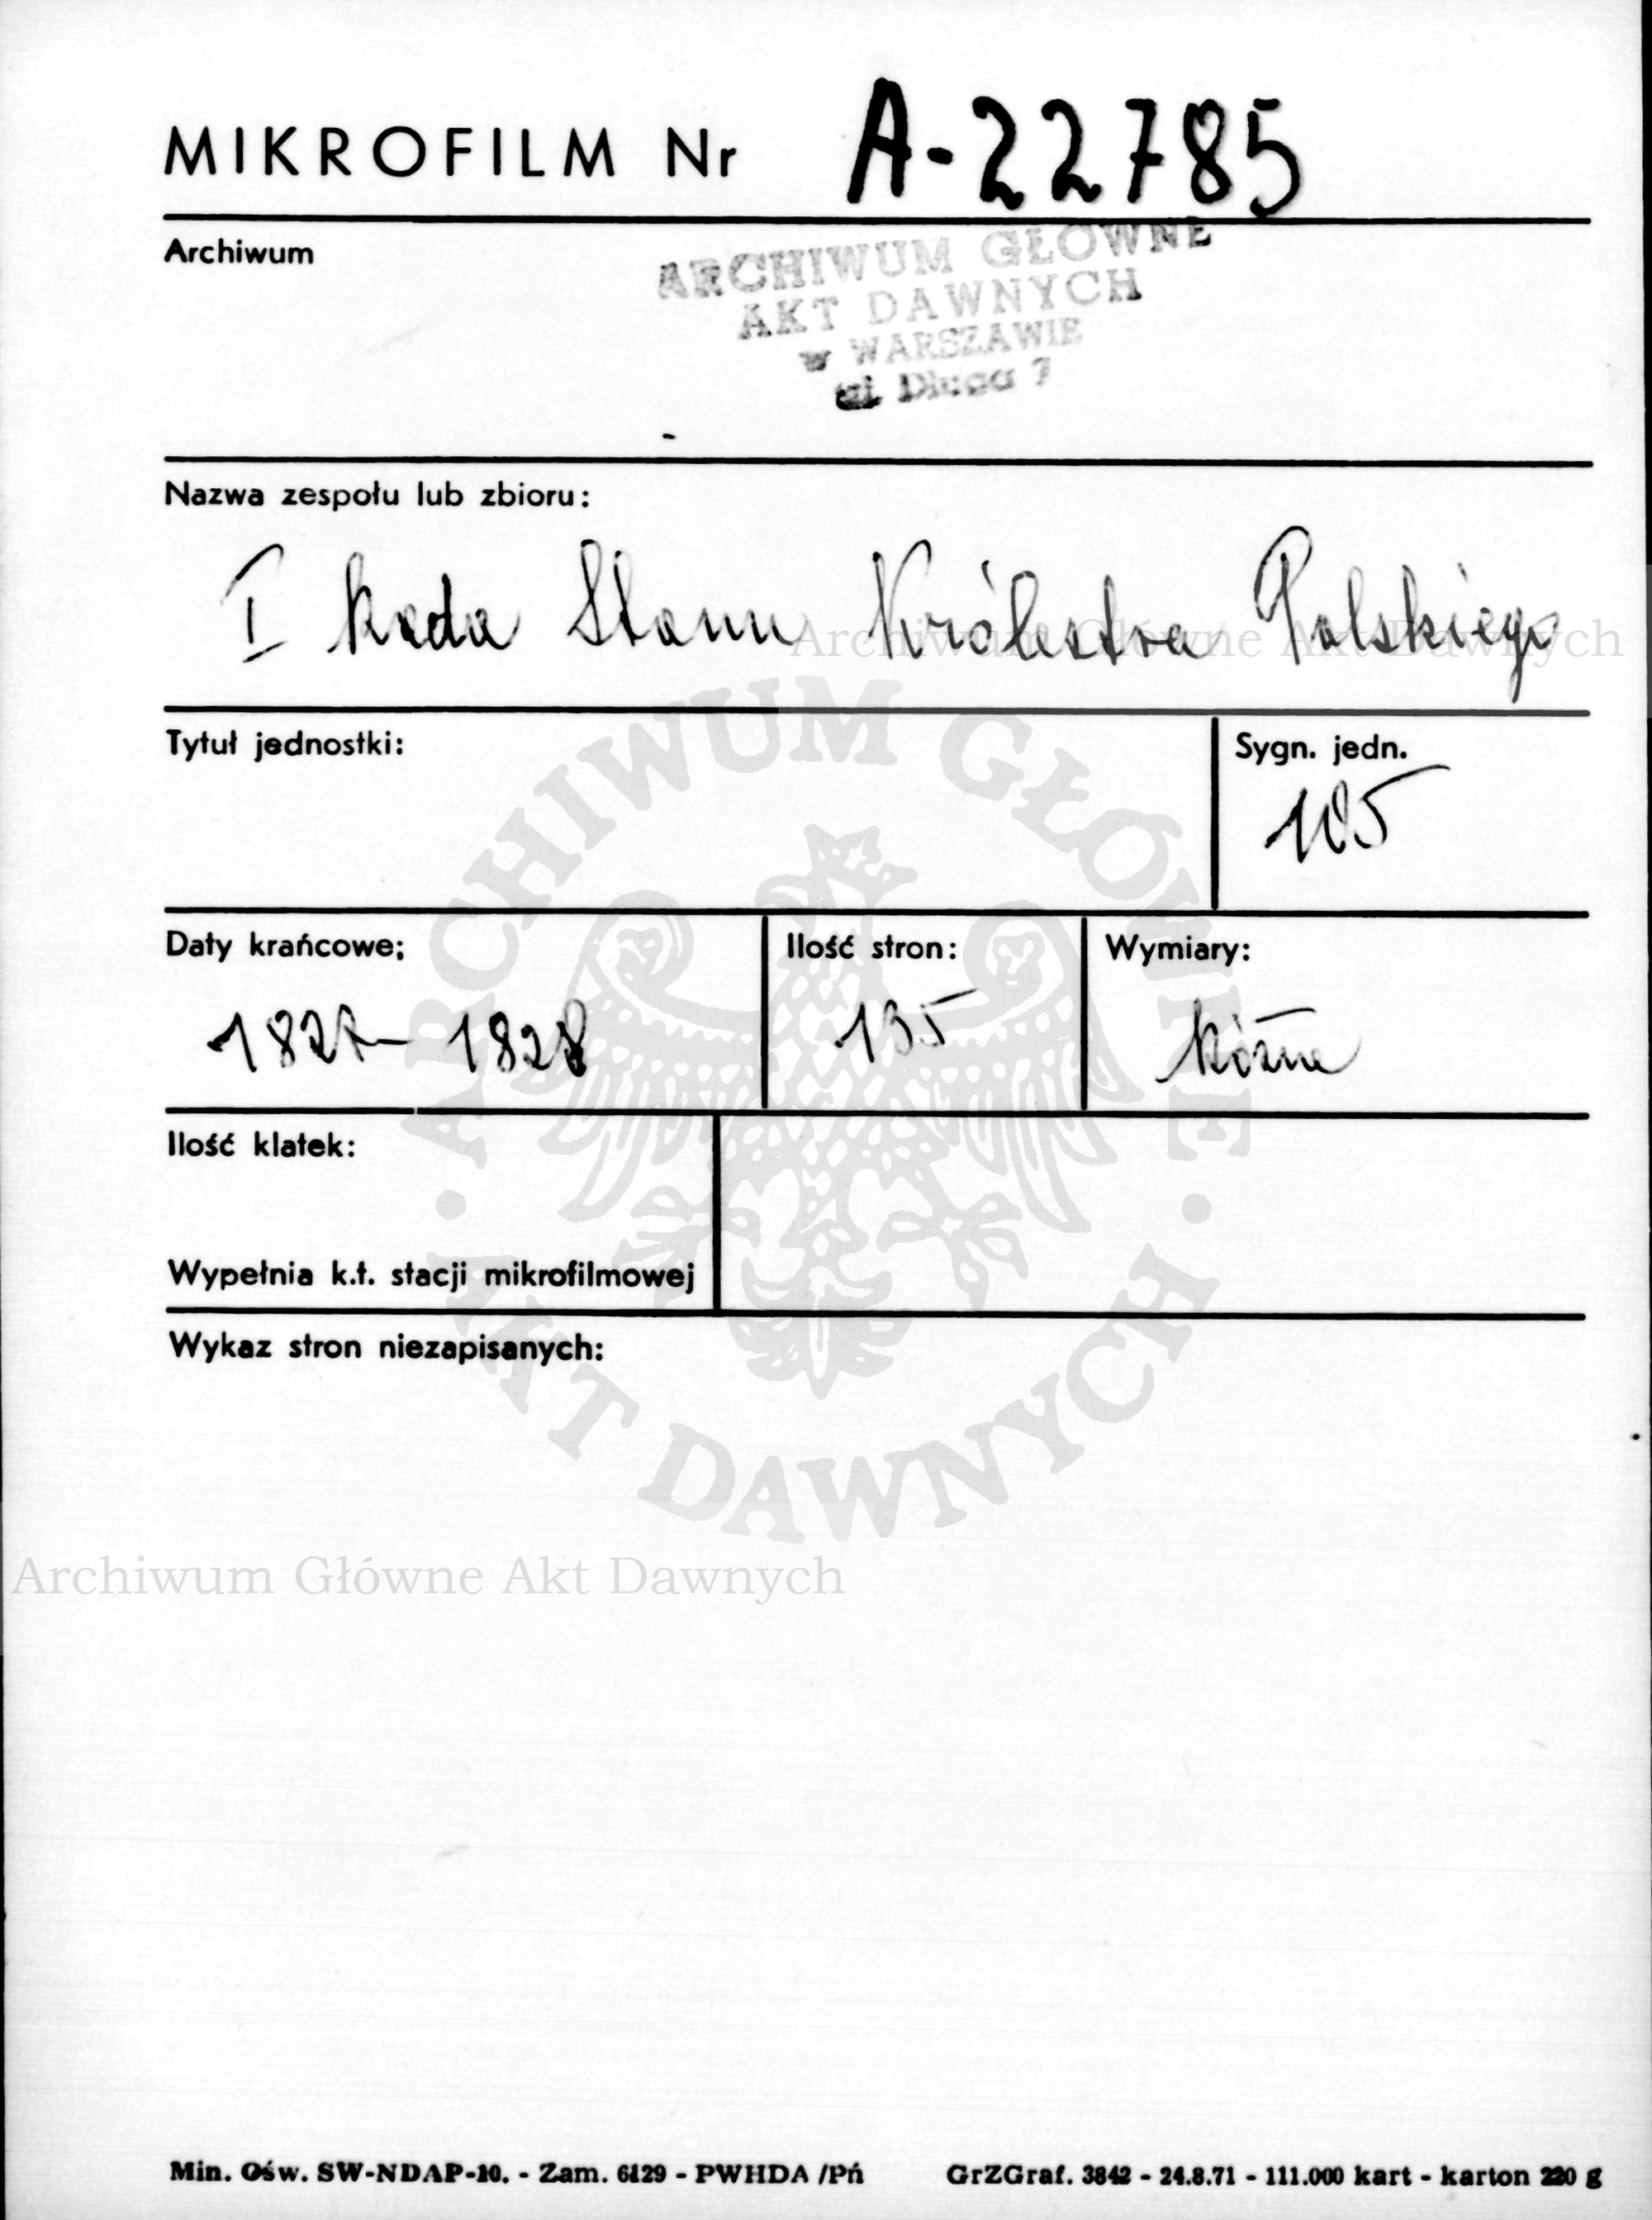 MIKROFILM Nr A-22785
Archiwum
ARCHIWUM GŁÓWNE
AKT DAWNYCH
w WARSZAWIE
ul. Długa 7
Nazwa zespołu lub zbioru:
I Rada Stanu Królestwa Polskiego
Archiwum Główne Akt Dawnych
Tytuł jednostki:
Sygn. jedn.
105
Daty krańcowe;
Ilość stron:
Wymiary:
1827-1828
135
Różne
Ilość klatek:
Wypełnia k.t. stacji mikrofilmowej
Wykaz stron niezapisanych:
ARCHIWUM GŁÓWNE
· AKT DAWNYCH ·
Archiwum Główne Akt Dawnych
Min. Ośw. SW-NDAP-10. - Zam. 6129 - PWHDA /Pń
GrZGraf. 3842 - 24.8.71 - 111.000 kart - karton 220 g